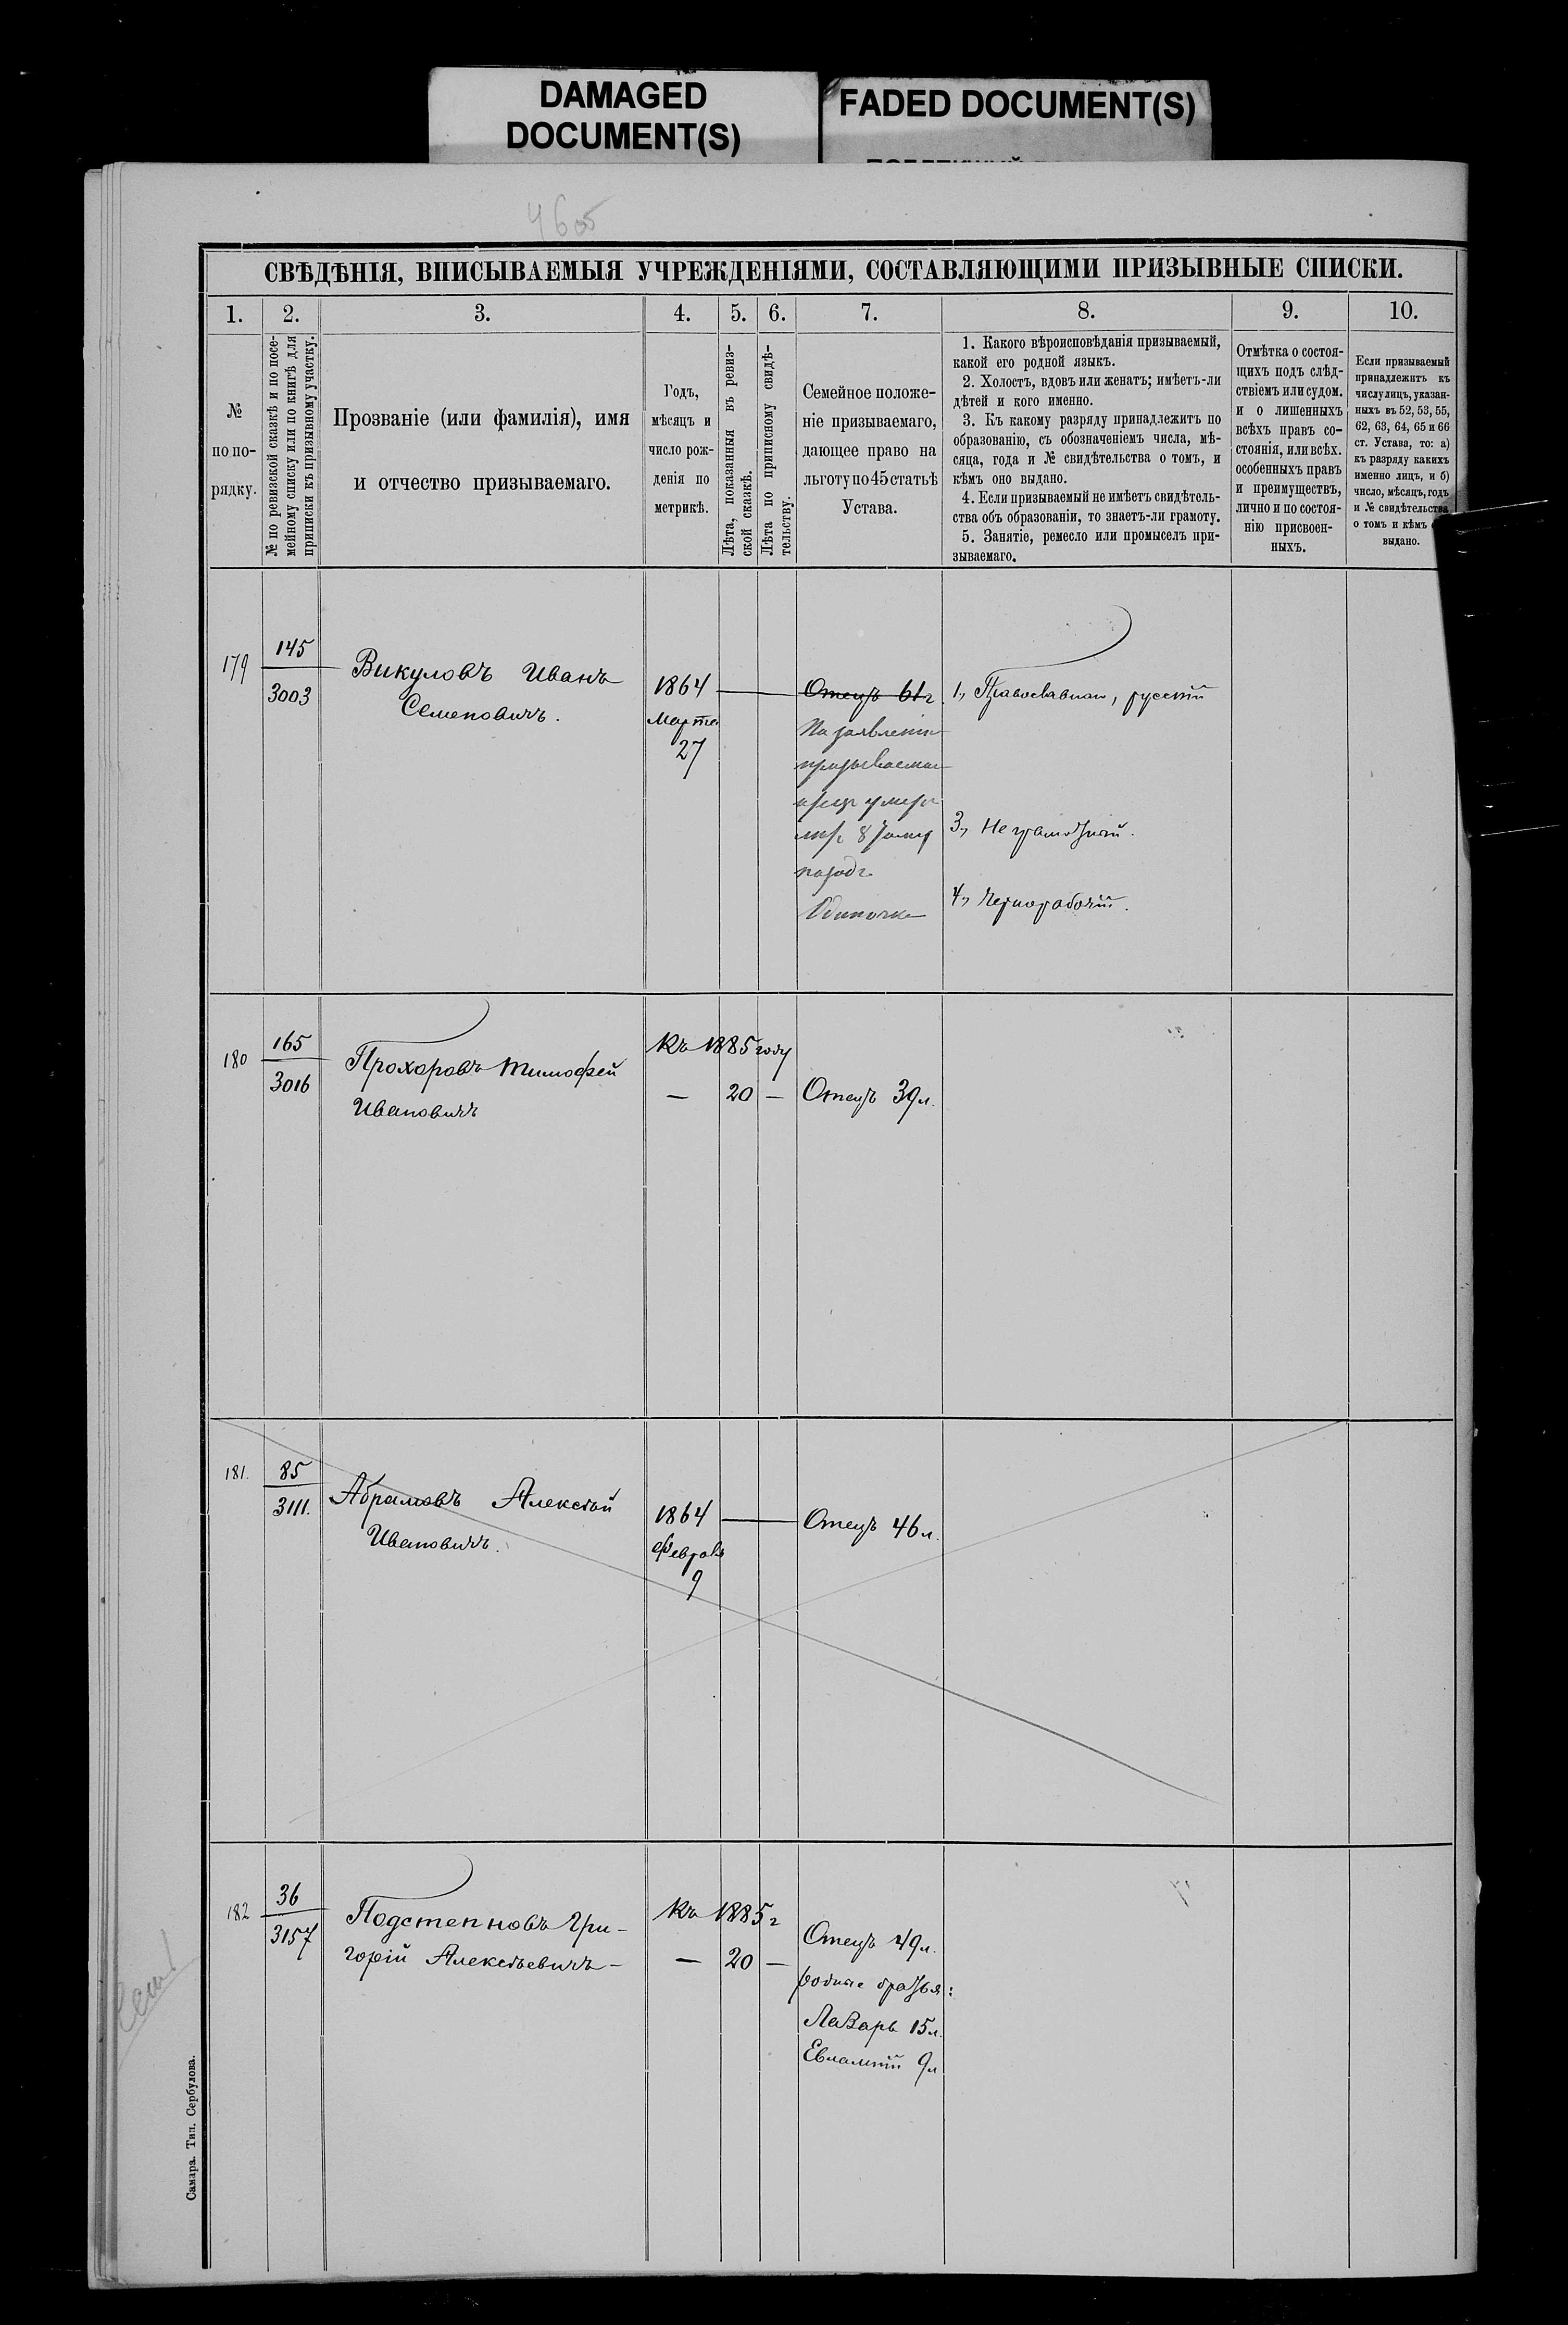 DAMAGED
DOCUMENT(S)
FADED DOCUMENT(S)
СВѢДѢНІЯ, ВПИСЫВАЕМЫЯ УЧРЕЖДЕНІЯМИ, СОСТАВЛЯЮЩИМИ ПРИЗЫВНЫЕ СПИСКИ.
1. 2. 3. 4. 5. 6. 7. 8. 9. 10.
№
по по-
рядку.
№ по ревизской сказкѣ и по посе-
мейному списку или по книгѣ для
приписки къ призывному участку.
Прозваніе (или фамилія), имя
и отчество призываемаго.
Годъ,
мѣсяцъ и
число рож-
денія по
метрикѣ.
Лѣта, показанныя въ ревиз-
ской сказкѣ.
Лѣта по приписному свидѣ-
тельству.
Семейное положе-
ніе призываемаго,
дающее право на
льготу по 45 статьѣ
Устава.
1. Какого вѣроисповѣданія призываемый,
какой его родной языкъ.
2. Холостъ, вдовъ или женатъ; имѣетъ-ли
дѣтей и кого именно.
3. Къ какому разряду принадлежитъ по
образованію, съ обозначеніемъ числа, мѣ-
сяца, года и № свидѣтельства о томъ, и
кѣмъ оно выдано.
4. Если призываемый не имѣетъ свидѣтель-
ства объ образованіи, то знаетъ-ли грамоту.
5. Занятіе, ремесло или промыселъ при-
зываемаго.
Отмѣтка о состоя-
щихъ подъ слѣд-
ствіемъ или судом.
и о лишенныхъ
всѣхъ правъ со-
стоянія, или всѣх.
особенныхъ правъ
и преимуществъ,
лично и по состоя-
нію присвоен-
ныхъ.
Если призываемый
принадлежитъ къ
числу лицъ, указан-
ныхъ въ 52, 53, 55,
62, 63, 64, 65 и 66
ст. Устава, то: а)
къ разряду какихъ
именно лицъ, и б)
число, мѣсяцъ, годъ
и № свидѣтельства
о томъ и кѣмъ
выдано.
179
145
3003
Викуловъ Иванъ
Семеновичъ.
1864
марта
27
Отецъ 61г.
По заявленію
призываемаго
отецъ умеръ
назадъ
Одиночка
1, Православнаго, русскій
3, Неграмотный.
4, Чернорабочій.
180
165
3016
Прохоровъ Тимофей
Ивановичъ
Къ 1885 году
— 20 —
Отецъ 39 л.
181.
85
3111.
Абрамовъ Алексѣй
Ивановичъ.
1864
Февраля
9
Отецъ 46 л.
182
36
3157
Подстепновъ Гри-
горій Алексѣевичъ –
Къ 1885 г
— 20 —
Отецъ 49 л.
родные братья:
Лазарь 15 л.
Евлампій 9 л
Самара. Тип. Сербулова.